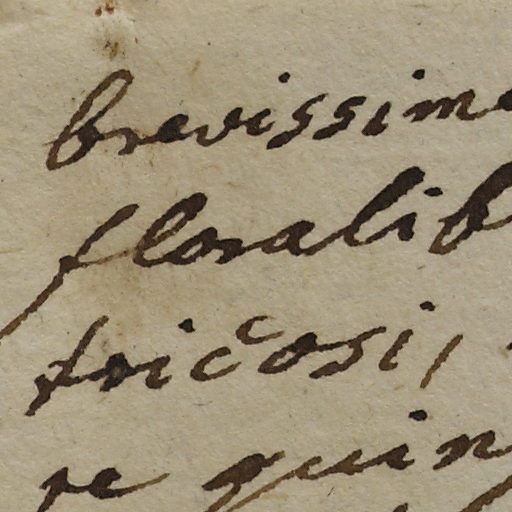 brevissime
floralib
tricosi,
re quin